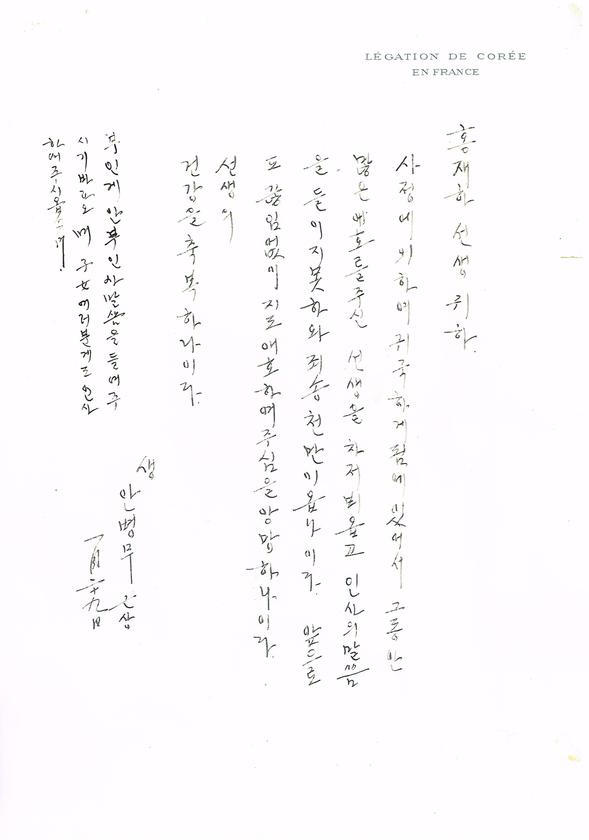 LÉGATION DE CORÉE
EN FRANCE
홍재하 선생 귀하.
사정에 의하여 귀국하게 됨에 있어서 그동안
많은 애호를 주신 선생을 차저 뵈옵고 인사의 말씀
을 들이지 못하와 죄송천만이옵나이다. 앞으로
도 끊임없이 지도애호하여주심을 앙망하나이다.
선생의
건강을 축복하나이다.
부인게 안부인사말씀을 들여주
시기바라오며 구女여러분게도 인사
하여주시옵소서.
생
안병무
一月二十九日